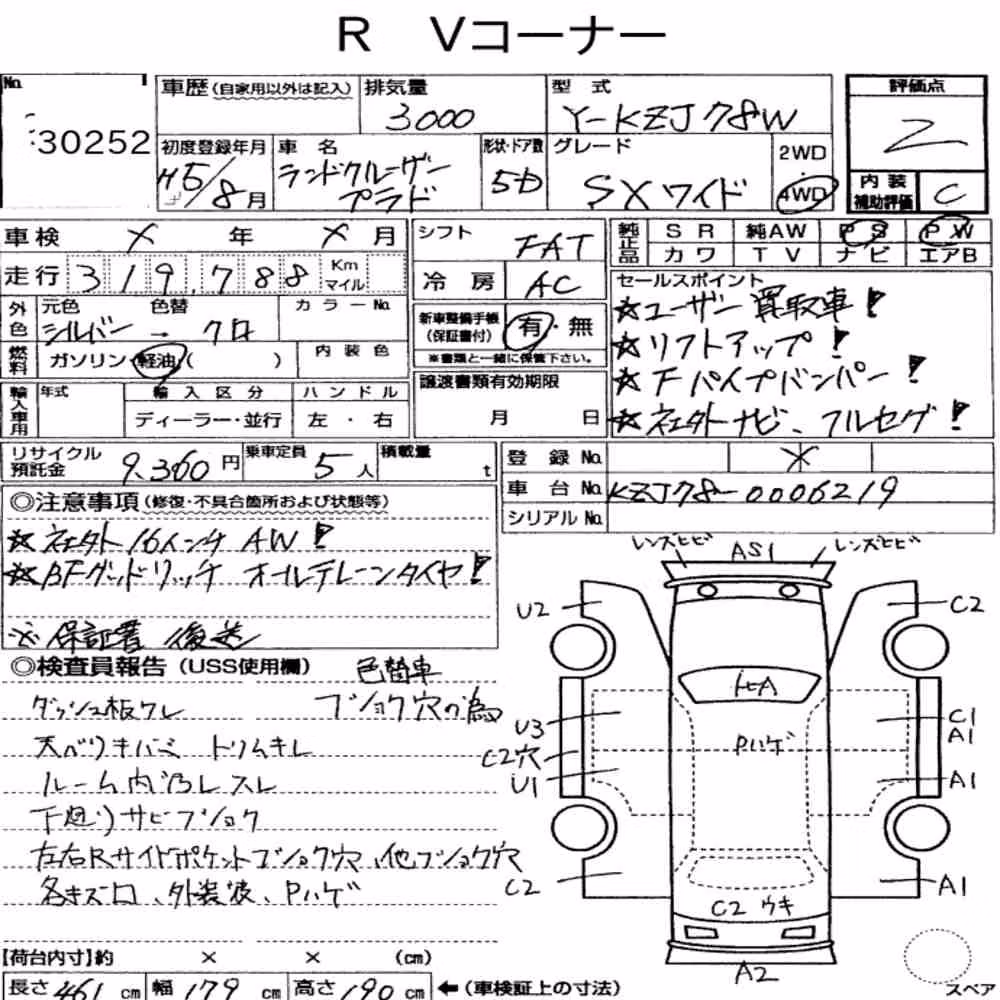 R Vコーナー
No.
30252
車歴(自家用以外は記入)
排気量
3000
型式
Y-KZJ78W
評価点
2
内装
補助評価
C
初度登録年月
H5/8月
車名
ランドクルーザー
プラド
形状・ドア数
5D
グレード
SXワイド
2WD
4WD
車検 × 年 × 月
シフト
FAT
純正品
SR 純AW PS PW
カワ TV ナビ エアB
走行 319,788 Km
マイル
冷房 AC
外色
元色 色替
シルバー → クロ
カラーNo.
新車整備手帳
(保証書付)
有・無
※書類と一緒に保管下さい。
燃料
ガソリン・軽油( )
内装色
譲渡書類有効期限
月 日
セールスポイント
★ユーザー買取車!
★リフトアップ!
★Fパイプバンパー!
★社外ナビ、フルセグ!
輸入車用
年式
輸入区分
ディーラー・並行
ハンドル
左・右
リサイクル
預託金
9,360円
乗車定員 5人
積載量 t
登録No. ×
車台No. KZJ78-0006219
シリアルNo.
◎注意事項(修復・不具合箇所および状態等)
★社外16インチAW!
★BFグッドリッチ オールテレーンタイヤ!
※保証書 後送
◎検査員報告(USS使用欄) 色替車
ダッシュ板ワレ フショク穴の為
天ベリキバミ トリムキレ
ルーム内ヨゴレスレ
下廻りサビフショク
左右Rサイドポケットフショク穴、他フショク穴
各キズ凹、外装波、Pハゲ
レンズヒビ
AS1
レンズヒビ
U2
C2
トビA
U3
C2穴
U1
Pハゲ
C1
A1
A1
C2
C2 ウキ
A1
A2
スペア
【荷台内寸】約 × × (cm)
長さ461cm 幅179cm 高さ190cm ←(車検証上の寸法)